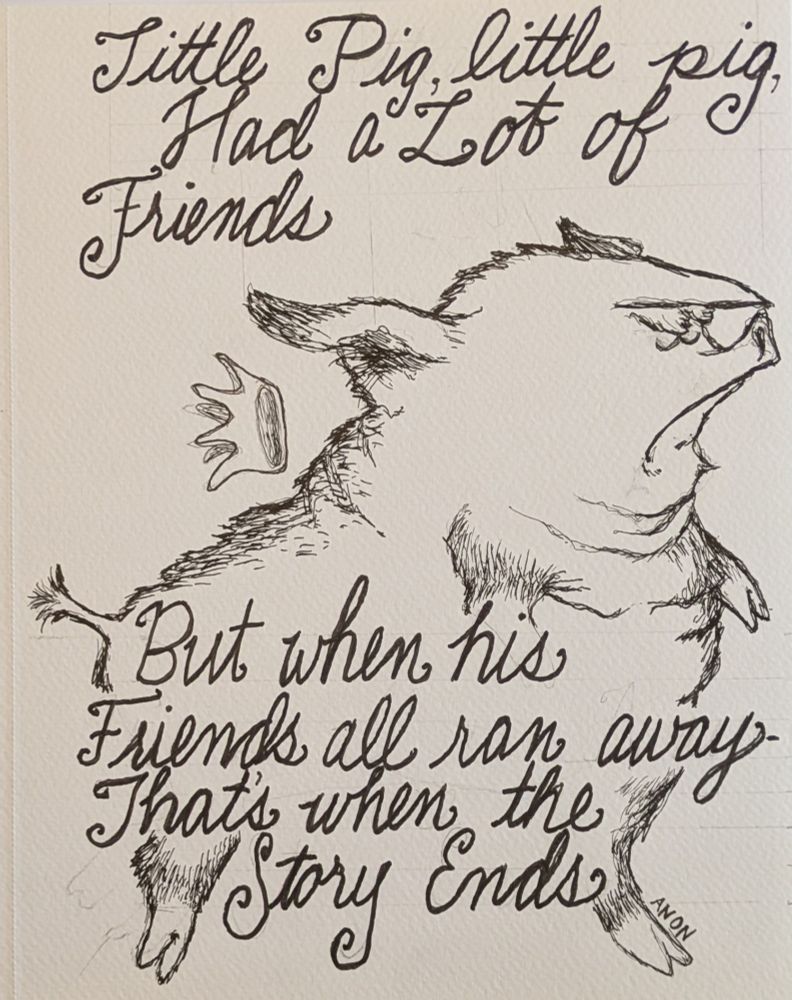 Little Pig, little pig,
Had a Lot of
Friends
But when his
Friends all ran away-
That's when the
Story Ends
ANON